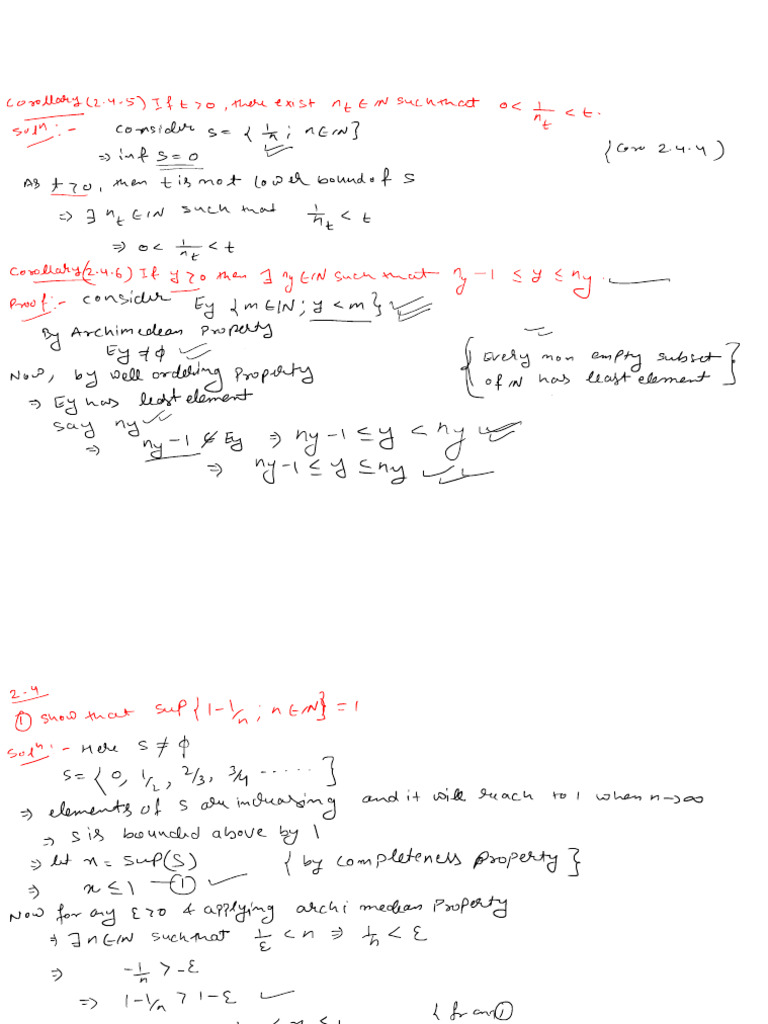 Corollary (2.4.5) If t>0, there exist n_t ∈ IN such that 0 < 1/n_t < t.
Solⁿ:- consider S = { 1/n ; n∈IN}
⇒ inf S = 0 { Coro 2.4.4 )
As t>0, then t is not lower bound of S
⇒ ∃ n_t ∈ IN such that 1/n_t < t
⇒ 0 < 1/n_t < t
Corollary (2.4.6) If y>0 then ∃ n_y∈IN such that n_y - 1 ≤ y ≤ n_y.
Proof:- consider E_y {m∈IN; y<m}
By Archimedean Property
E_y ≠ ϕ
Now, by well ordering Property
{ Every non empty subset
of IN has least element }
⇒ E_y has least element
say n_y
⇒ n_y - 1 ∉ E_y ⇒ n_y - 1 ≤ y < n_y
⇒ n_y - 1 ≤ y ≤ n_y
2.4
① Show that sup { 1 - 1/n ; n∈IN} = 1
Solⁿ:- Here S ≠ ϕ
S = { 0, 1/2, 2/3, 3/4 ...... }
⇒ elements of S are increasing and it will reach to 1 when n→∞
⇒ S is bounded above by 1
⇒ let x = sup(S) { by completeness property }
⇒ x ≤ 1 —①
Now for any ε>0 & applying archi median Property
⇒ ∃ n∈IN such that 1/ε < n ⇒ 1/n < ε
⇒ -1/n > -ε
⇒ 1 - 1/n > 1 - ε
{ from ①